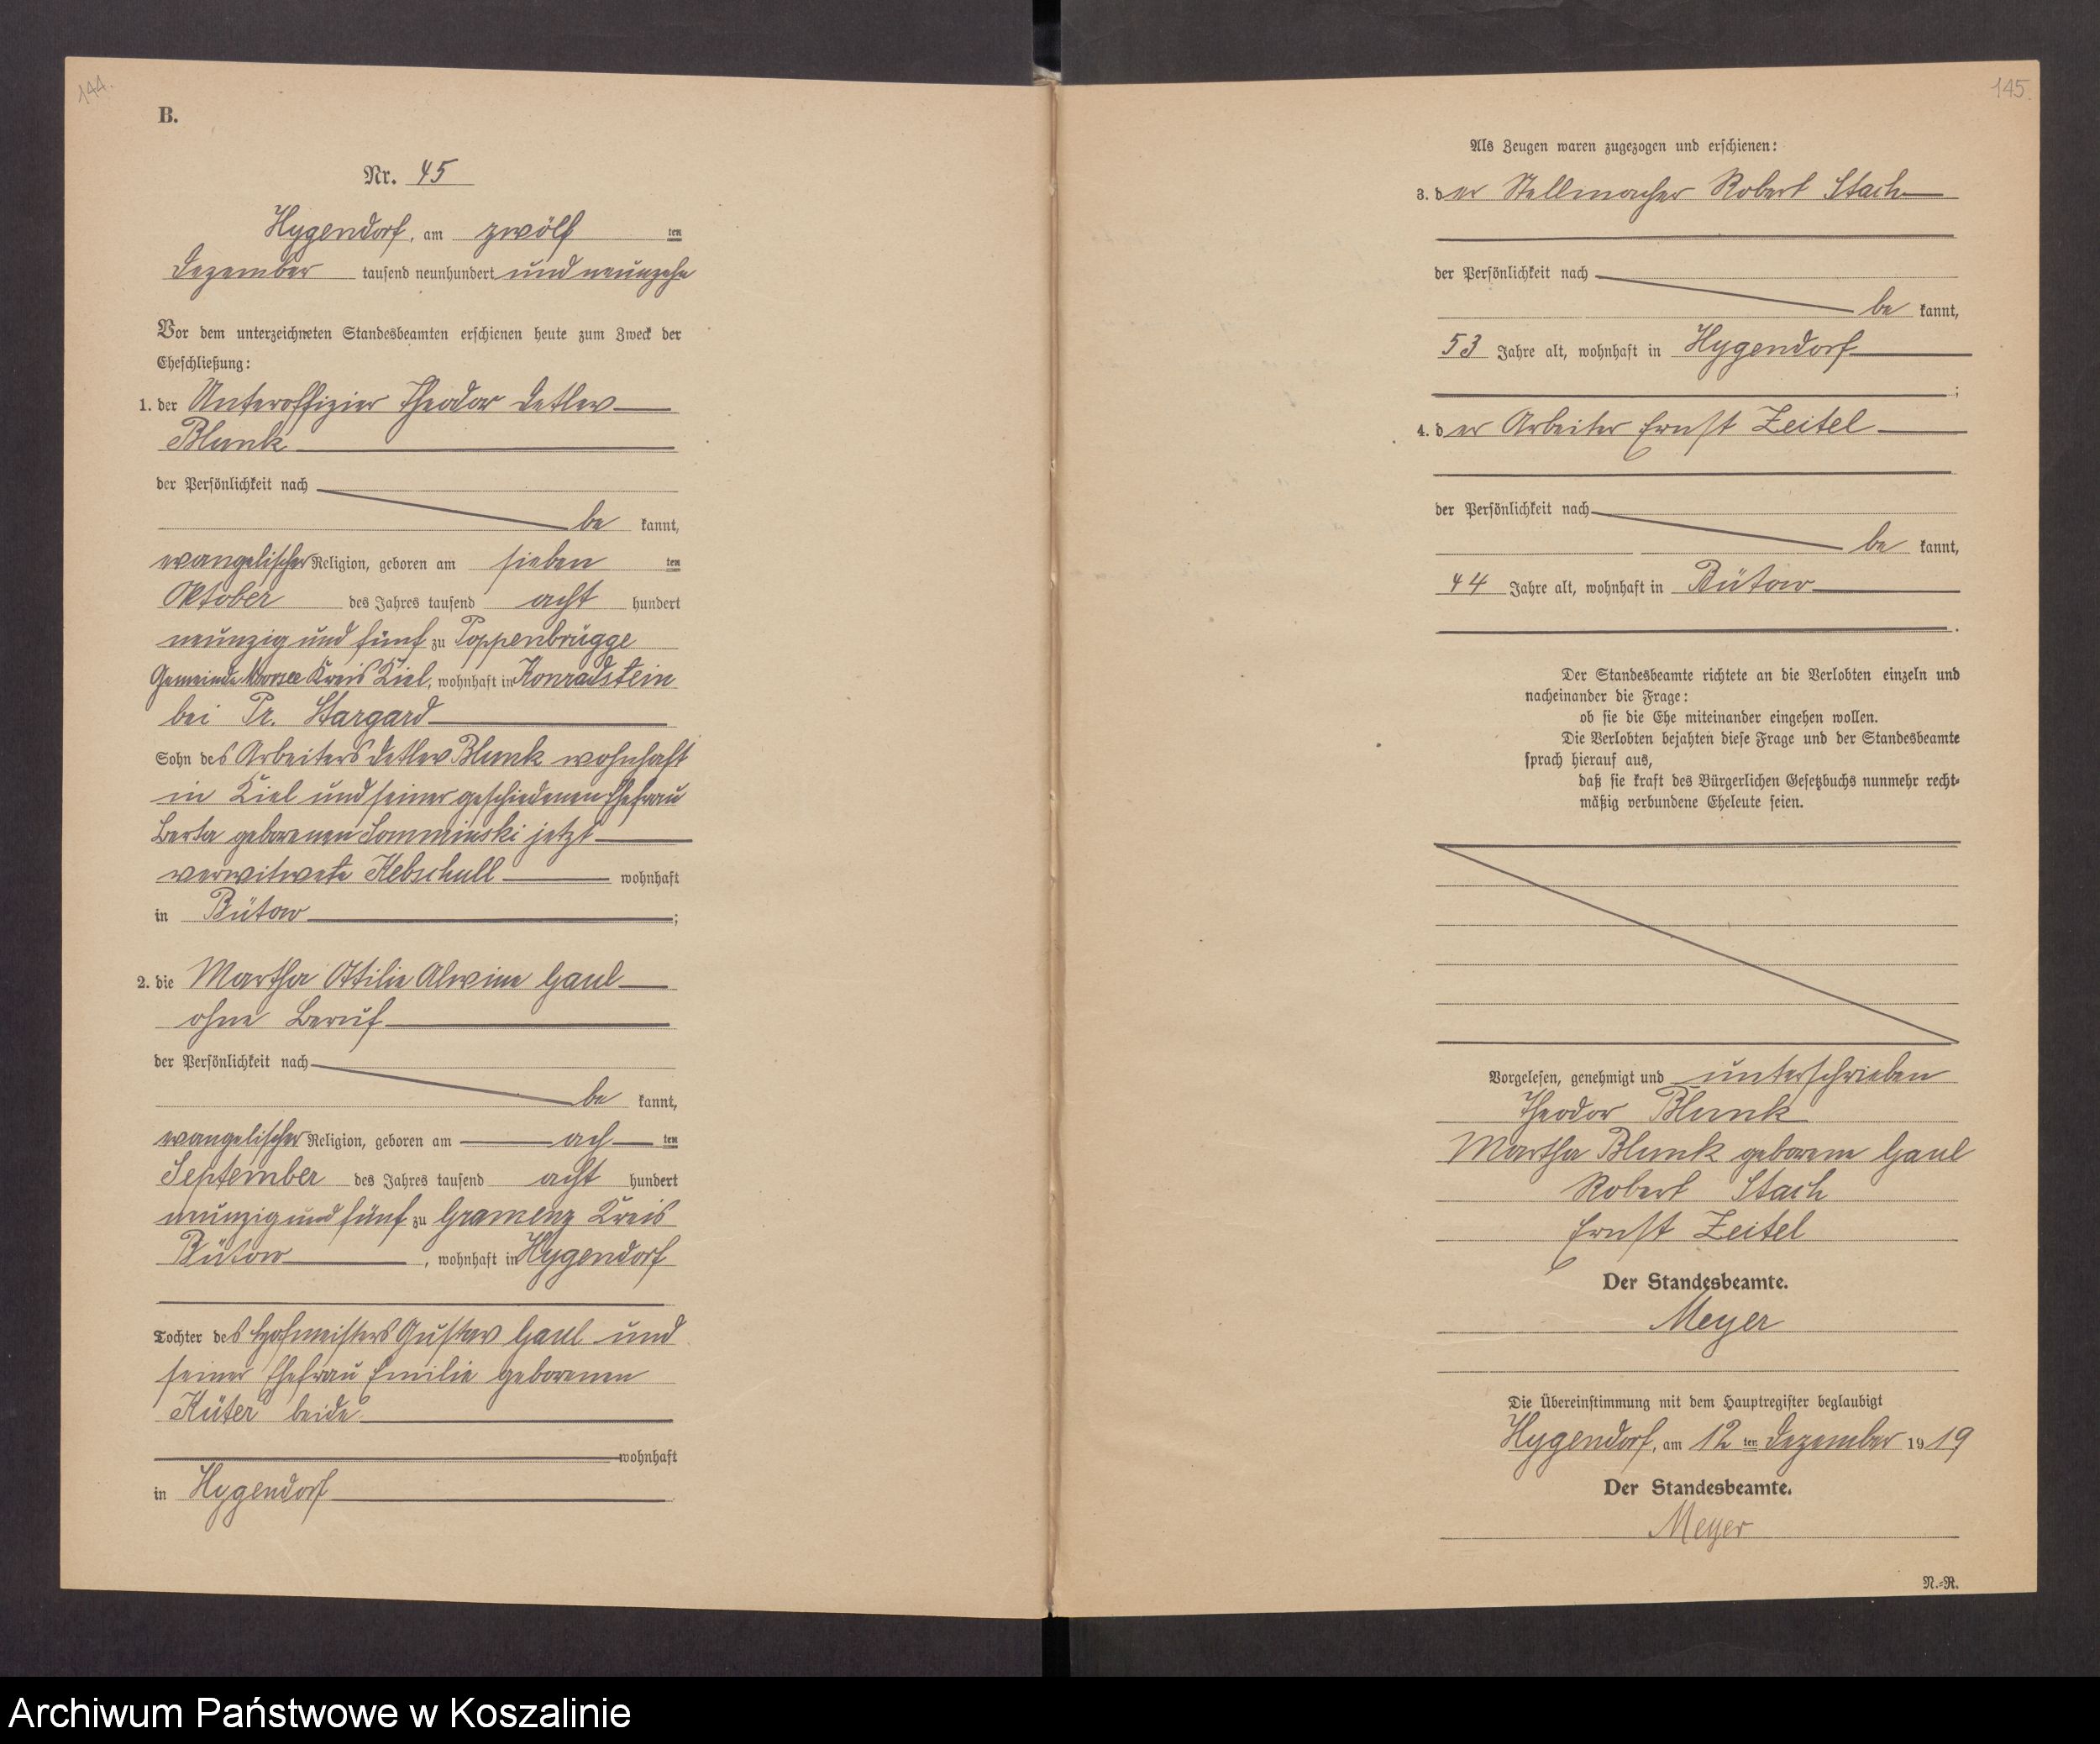 144.
B.
Nr. 45
Hygendorf, am zwölf ten
Dezember tausend neunhundert und neunzehn
Vor dem unterzeichneten Standesbeamten erschienen heute zum Zweck der
Eheschließung:
1. der Unteroffizier Theodor Detlev
Blunk
der Persönlichkeit nach
be kannt,
evangelischer Religion, geboren am sieben ten
Oktober des Jahres tausend acht hundert
neunzig und fünf zu Poppenbrügge
Gemeinde Moorsee Kreis Kiel, wohnhaft in Konradstein
bei Pr. Stargard
Sohn des Arbeiters Detlev Blunk wohnhaft
in Kiel und seiner geschiedenen Ehefrau
Berta geborenen jetzt
verwitwete Klebschull wohnhaft
in Bütow ;
2. die Martha Ottilie Alwine Gaul
ohne Beruf
der Persönlichkeit nach
be kannt,
evangelischer Religion, geboren am ach ten
September des Jahres tausend acht hundert
neunzig und fünf zu Gramenz Kreis
Bütow , wohnhaft in Hygendorf
Tochter des Hofmeisters Gustav Gaul und
seiner Ehefrau Emilie geborenen
Küter beide
wohnhaft
in Hygendorf
145.
Als Zeugen waren zugezogen und erschienen:
3. der Stellmacher Robert Stach
der Persönlichkeit nach
be kannt,
53 Jahre alt, wohnhaft in Hygendorf
;
4. der Arbeiter Ernst Zeitel
der Persönlichkeit nach
be kannt,
44 Jahre alt, wohnhaft in Bütow
.
Der Standesbeamte richtete an die Verlobten einzeln und
nacheinander die Frage:
ob sie die Ehe miteinander eingehen wollen.
Die Verlobten bejahten diese Frage und der Standesbeamte
sprach hierauf aus,
daß sie kraft des Bürgerlichen Gesetzbuchs nunmehr recht-
mäßig verbundene Eheleute seien.
Vorgelesen, genehmigt und unterschrieben
Theodor Blunk
Martha Blunk geborene Gaul
Robert Stach
Ernst Zeitel
Der Standesbeamte.
Meyer
Die Übereinstimmung mit dem Hauptregister beglaubigt
Hygendorf, am 12 ten Dezember 1919
Der Standesbeamte.
Meyer
N.-R.
Archiwum Państwowe w Koszalinie